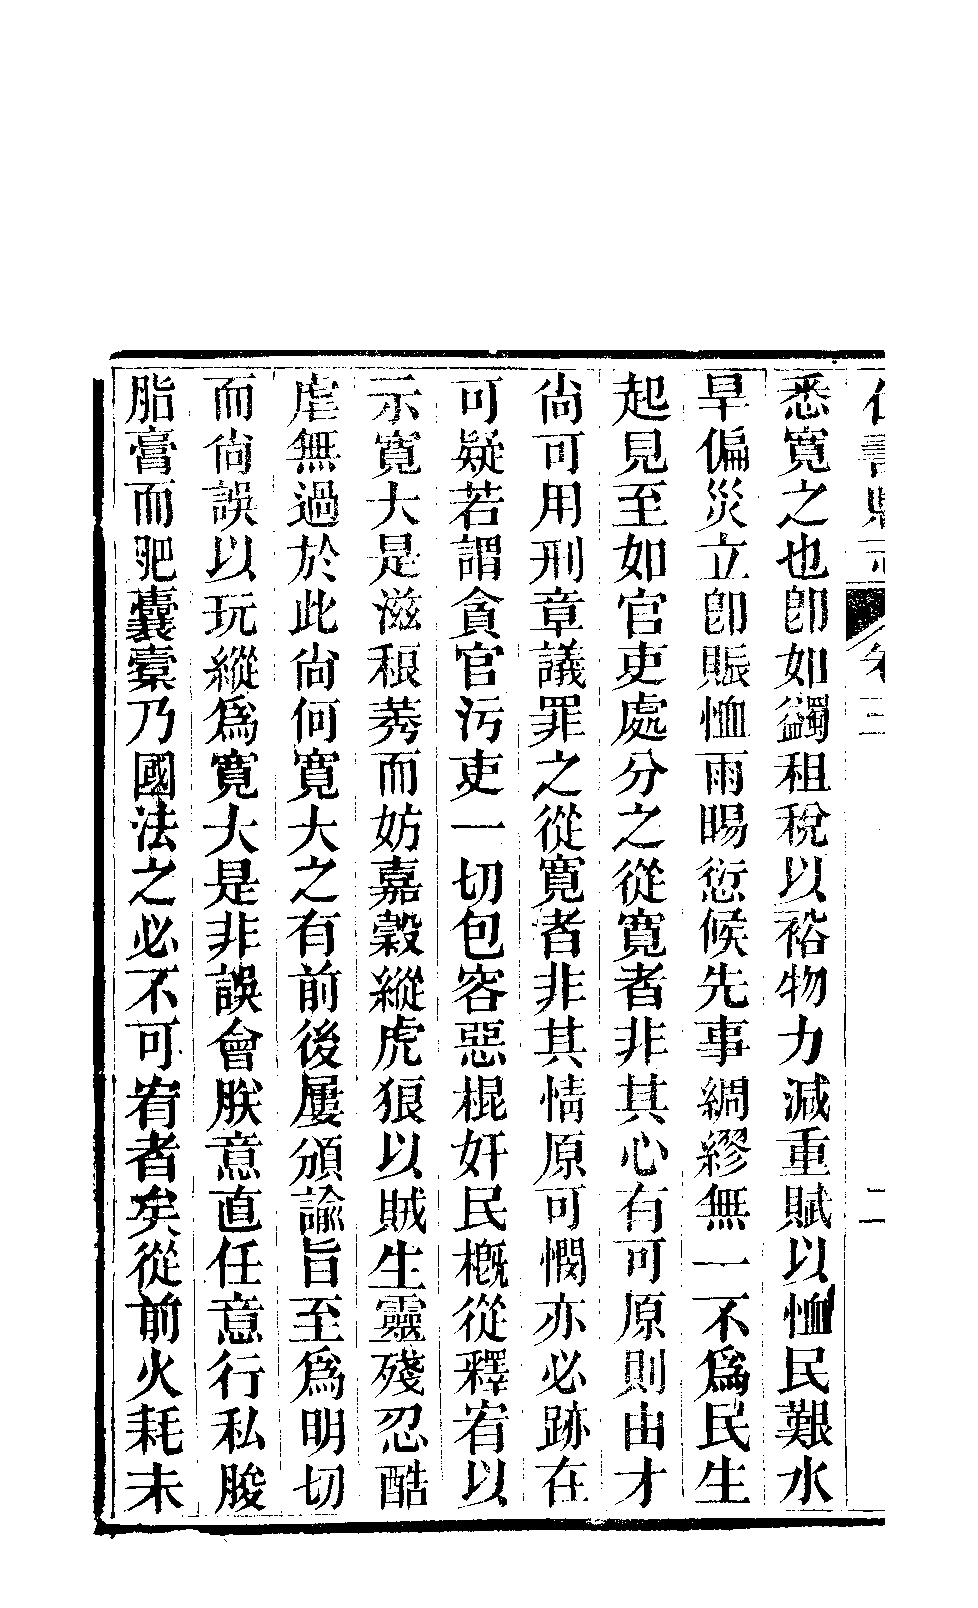 卷二 二
悉寬之也卽如蠲租稅以裕物力減重賦以恤民艱水
旱偏災立卽賑恤雨暘愆候先事綢繆無一不爲民生
起見至如官吏處分之從寬者非其心有可原則由才
尙可用刑章議罪之從寬者非其情原可憫亦必跡在
可疑若謂貪官污吏一切包容惡棍奸民槪從釋宥以
示寬大是滋稂莠而妨嘉穀縱虎狼以賊生靈殘忍酷
虐無過於此尙何寬大之有前後屢頒諭旨至爲明切
而尙誤以玩縱爲寬大是非誤會朕意直任意行私朘
脂膏而肥囊橐乃國法之必不可宥者矣從前火耗未